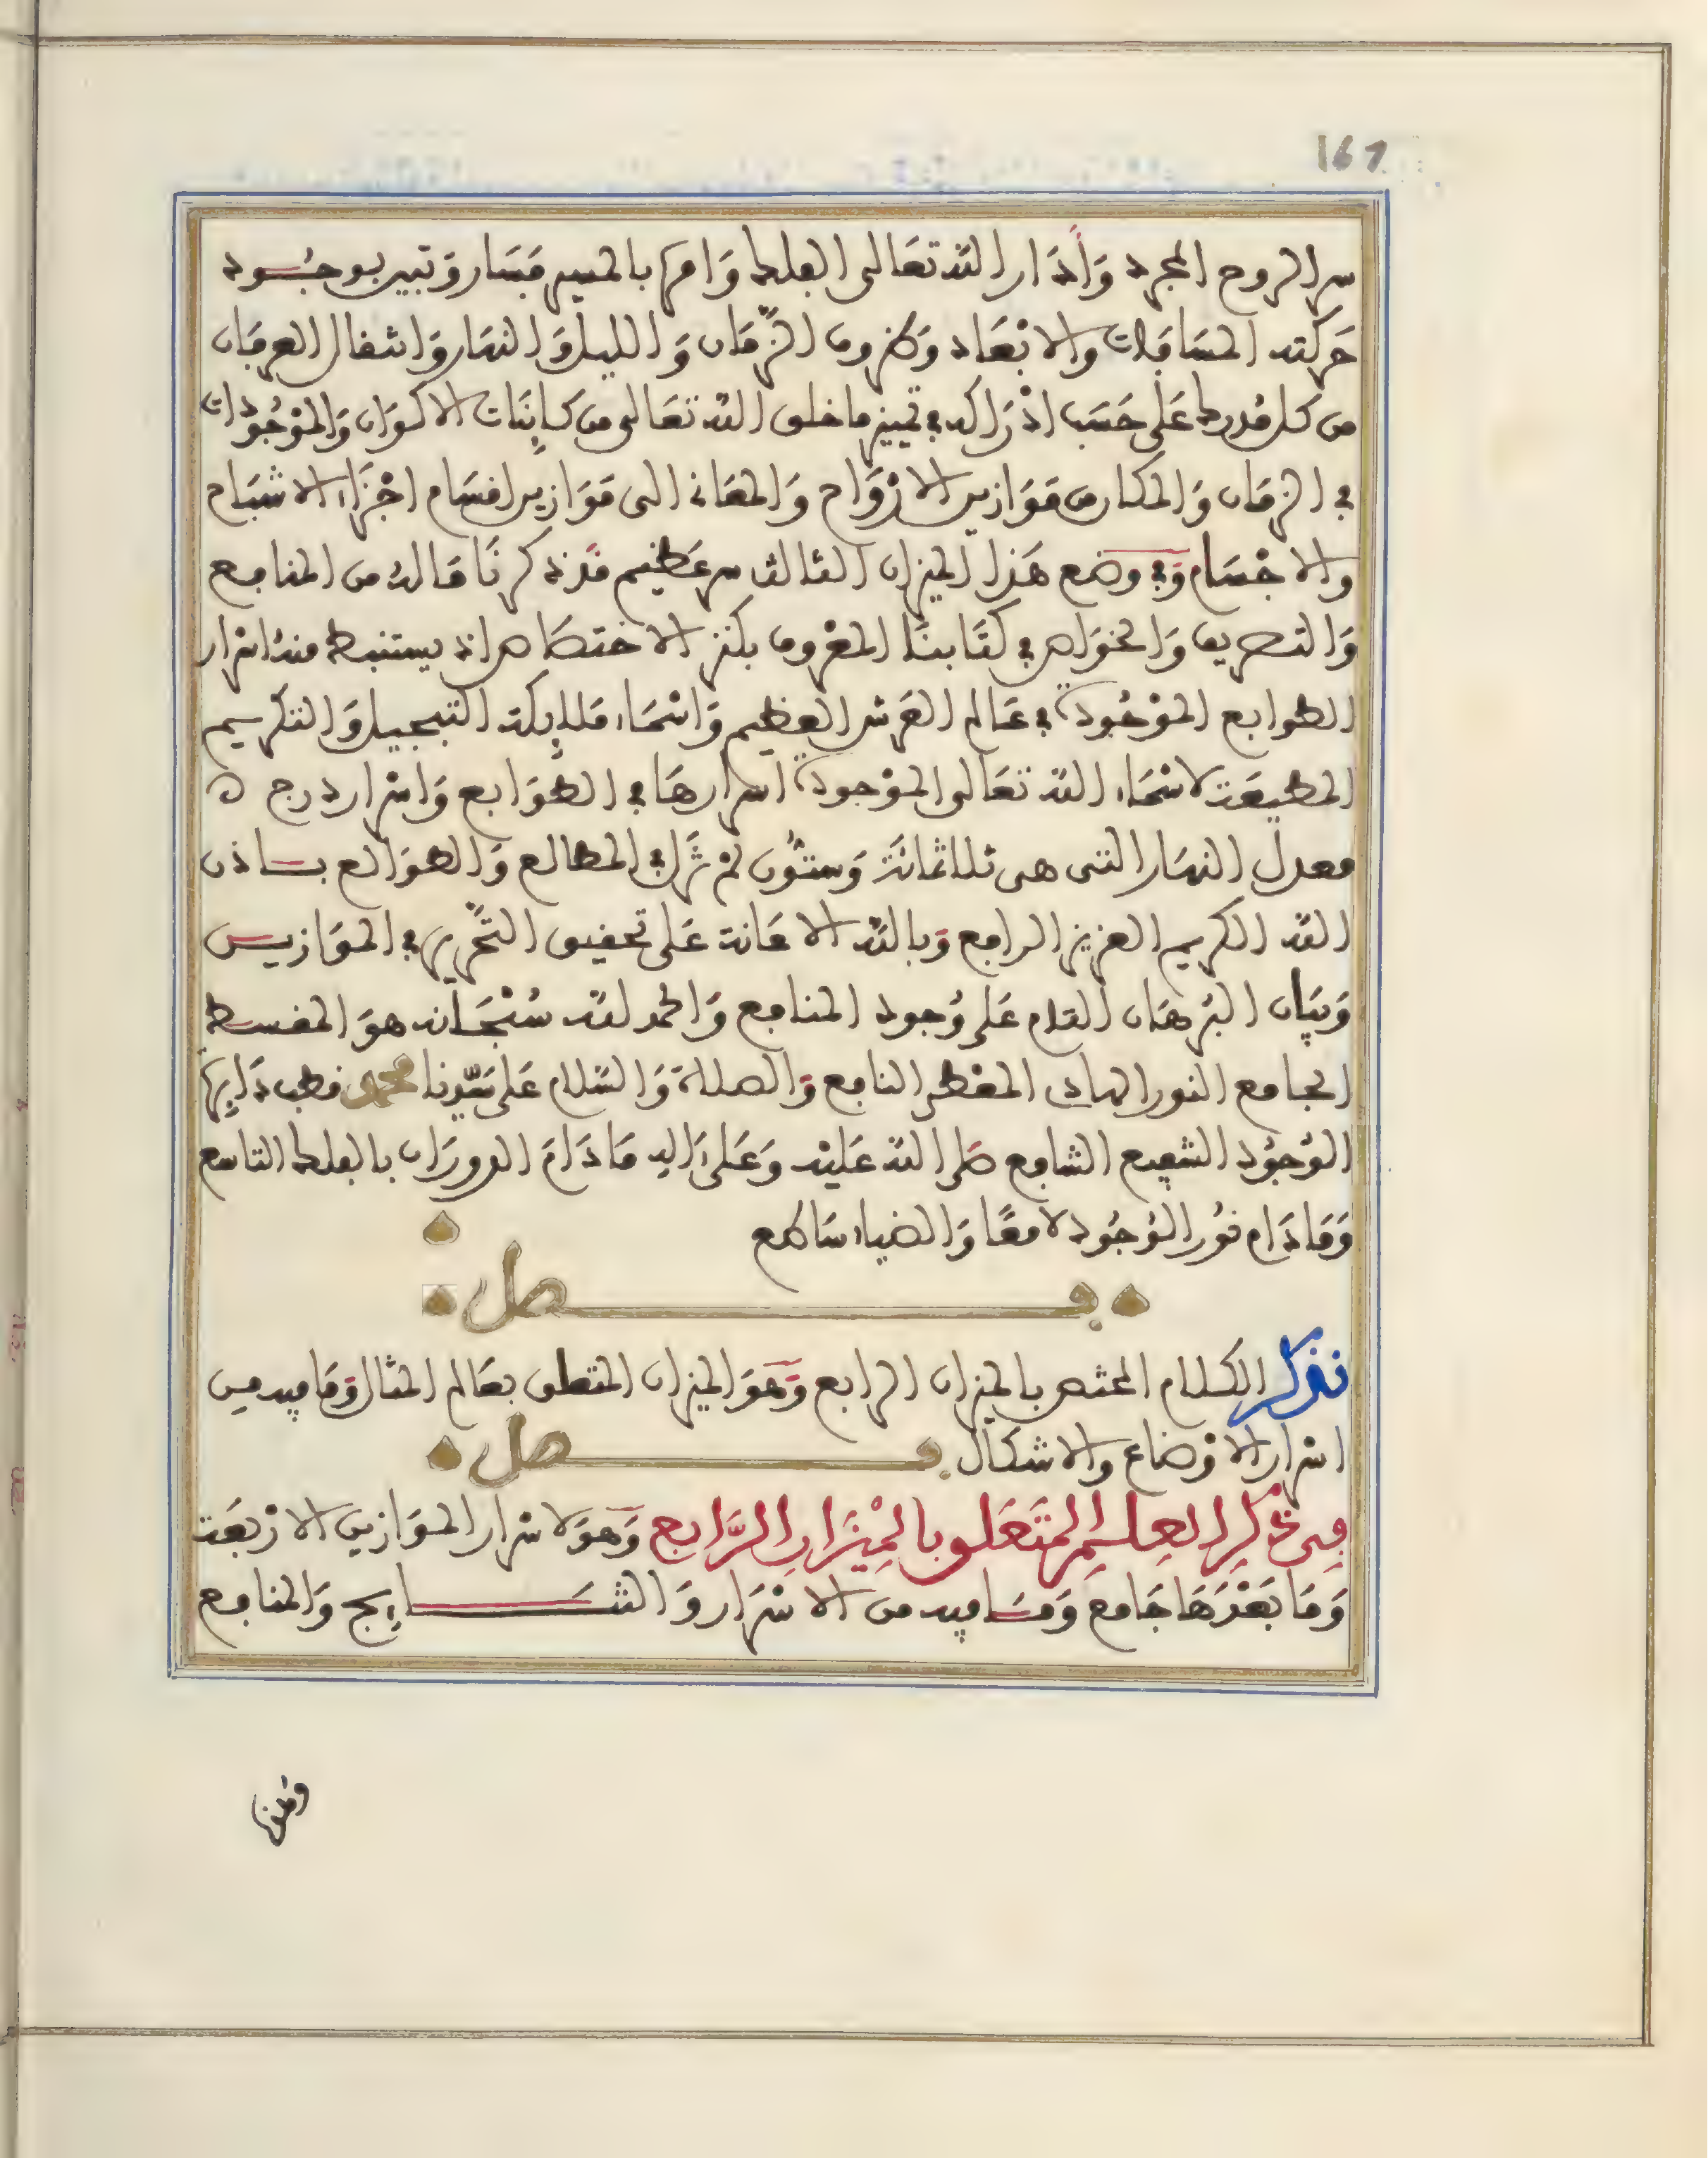 167
سر الروح المجرد وَأدَار الله تعَالى الفلك وَامره بالمسير فسَار وَتبين بوجُود
حَركته المسَافات والابْعَاد وَظروف الزّمَان وَالليل وَالنهَار وَاشغال العرفان
من كل مُدرك عَلى حَسَب ادْرَاكه في تمييز ما خلق الله تعَالى من كاينَات الاكوَان وَالموْجُودات
في الزمَان وَالمكان من مَوَازين الارْوَاح وَالمعَاني الى مَوَازين اقسَام اجْزَاء الاشبَاح
والاجْسَام وَفي وضع هَذا الميزان الثالث سر عَظيم قدْ ذكرنَا مَا له من المنافع
وَالتصريف وَالخوَاص في كتَابنا المعْروف بكنز الاختصَاص اذ يستنبط منه اسْرار
الطوابع الموْجُودة في عَالم العَرش العظيم وَاسْمَاء ملايكة التبجيل وَالتكريم
المطيعَة لاسْمَاء الله تعَالى الموْجودة اسرارهَا في الطوَابع وَاسْرار درج ه
معدل النهَار التي هي ثلاثمائة وَستّون لمْ تزَل في المطالع وَالطوَالع باذن
الله الكريم العزيز الرافع وَبالله الاعَانة عَلى تحقيق التّحْرير في الموَازين
وَبيَان البُرهَان التام عَلى وُجود المنافع وَالحمد لله سُبْحَانه هوَ المقسط
الجامع النور الهادي المعْطي النافع وَالصلاة وَالسّلام عَلى سَيّدنا محمد قطب دَايرة
الوُجُود الشفيع الشافع صَلى الله عَليْه وَعَلى ءَاله مَا دَامَ الدورَان بالفلك التاسع
وَمَا دَام نوُر الوُجُود لامعًا وَالضياء سَاطع
فصل
نذكر الكلام المختص بالميزان الرابع وَهوَ الميزان المتعلق بعَالم المثال وَمَا فيه من
اسْرار الاوْضاع والاشكال فصل
فِي ذكر العِلمِ المتَعَلق بالمِيْزَانِ الرَّابع وَهوَ لاسْرار الموَازين الارْبعَة
وَمَا بَعْدَهَا جَامع وَمَا فيه من الاسْرَار وَالنتَايج وَالمنافع